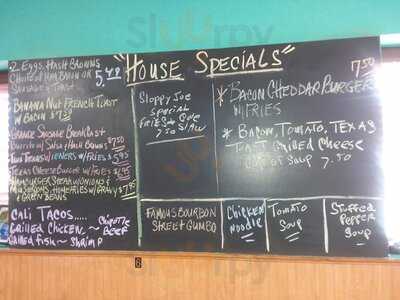 "HOUSE SPECIALS"
2 EGGS, HASH BROWNS
CHOICE OF HAM, BACON OR
SAUSAGE & TOAST
5.49
BANANA NUT FRENCH TOAST
W BACON $7.50
ORANGE SAUSAGE BREAKFAST
BURRITO W/ SALSA & HASH BROWNS $7.50
TEXAS WIENERS W/ FRIES $5.95
TEXAS CHEESE BURGER W/ FRIES
HAMBURGER STEAK W/ ONIONS &
MUSHROOMS, HOMEFRIES W/ GRAVY $7.95
& GREEN BEANS
CALI TACOS.....
GRILLED CHICKEN ~ CHIPOTLE BEEF
GRILLED FISH ~ SHRIMP
SLOPPY JOE
SPECIAL
FRIES &
7.50 SLAW
7.50
* BACON CHEDDAR BURGER
W/ FRIES
* BACON, TOMATO, TEXAS
TOAST GRILLED CHEESE
CUP OF SOUP 7.50
FAMOUS BOURBON
STREET GUMBO
CHICKEN
NOODLE
TOMATO
SOUP
STUFFED
PEPPER
SOUP
6